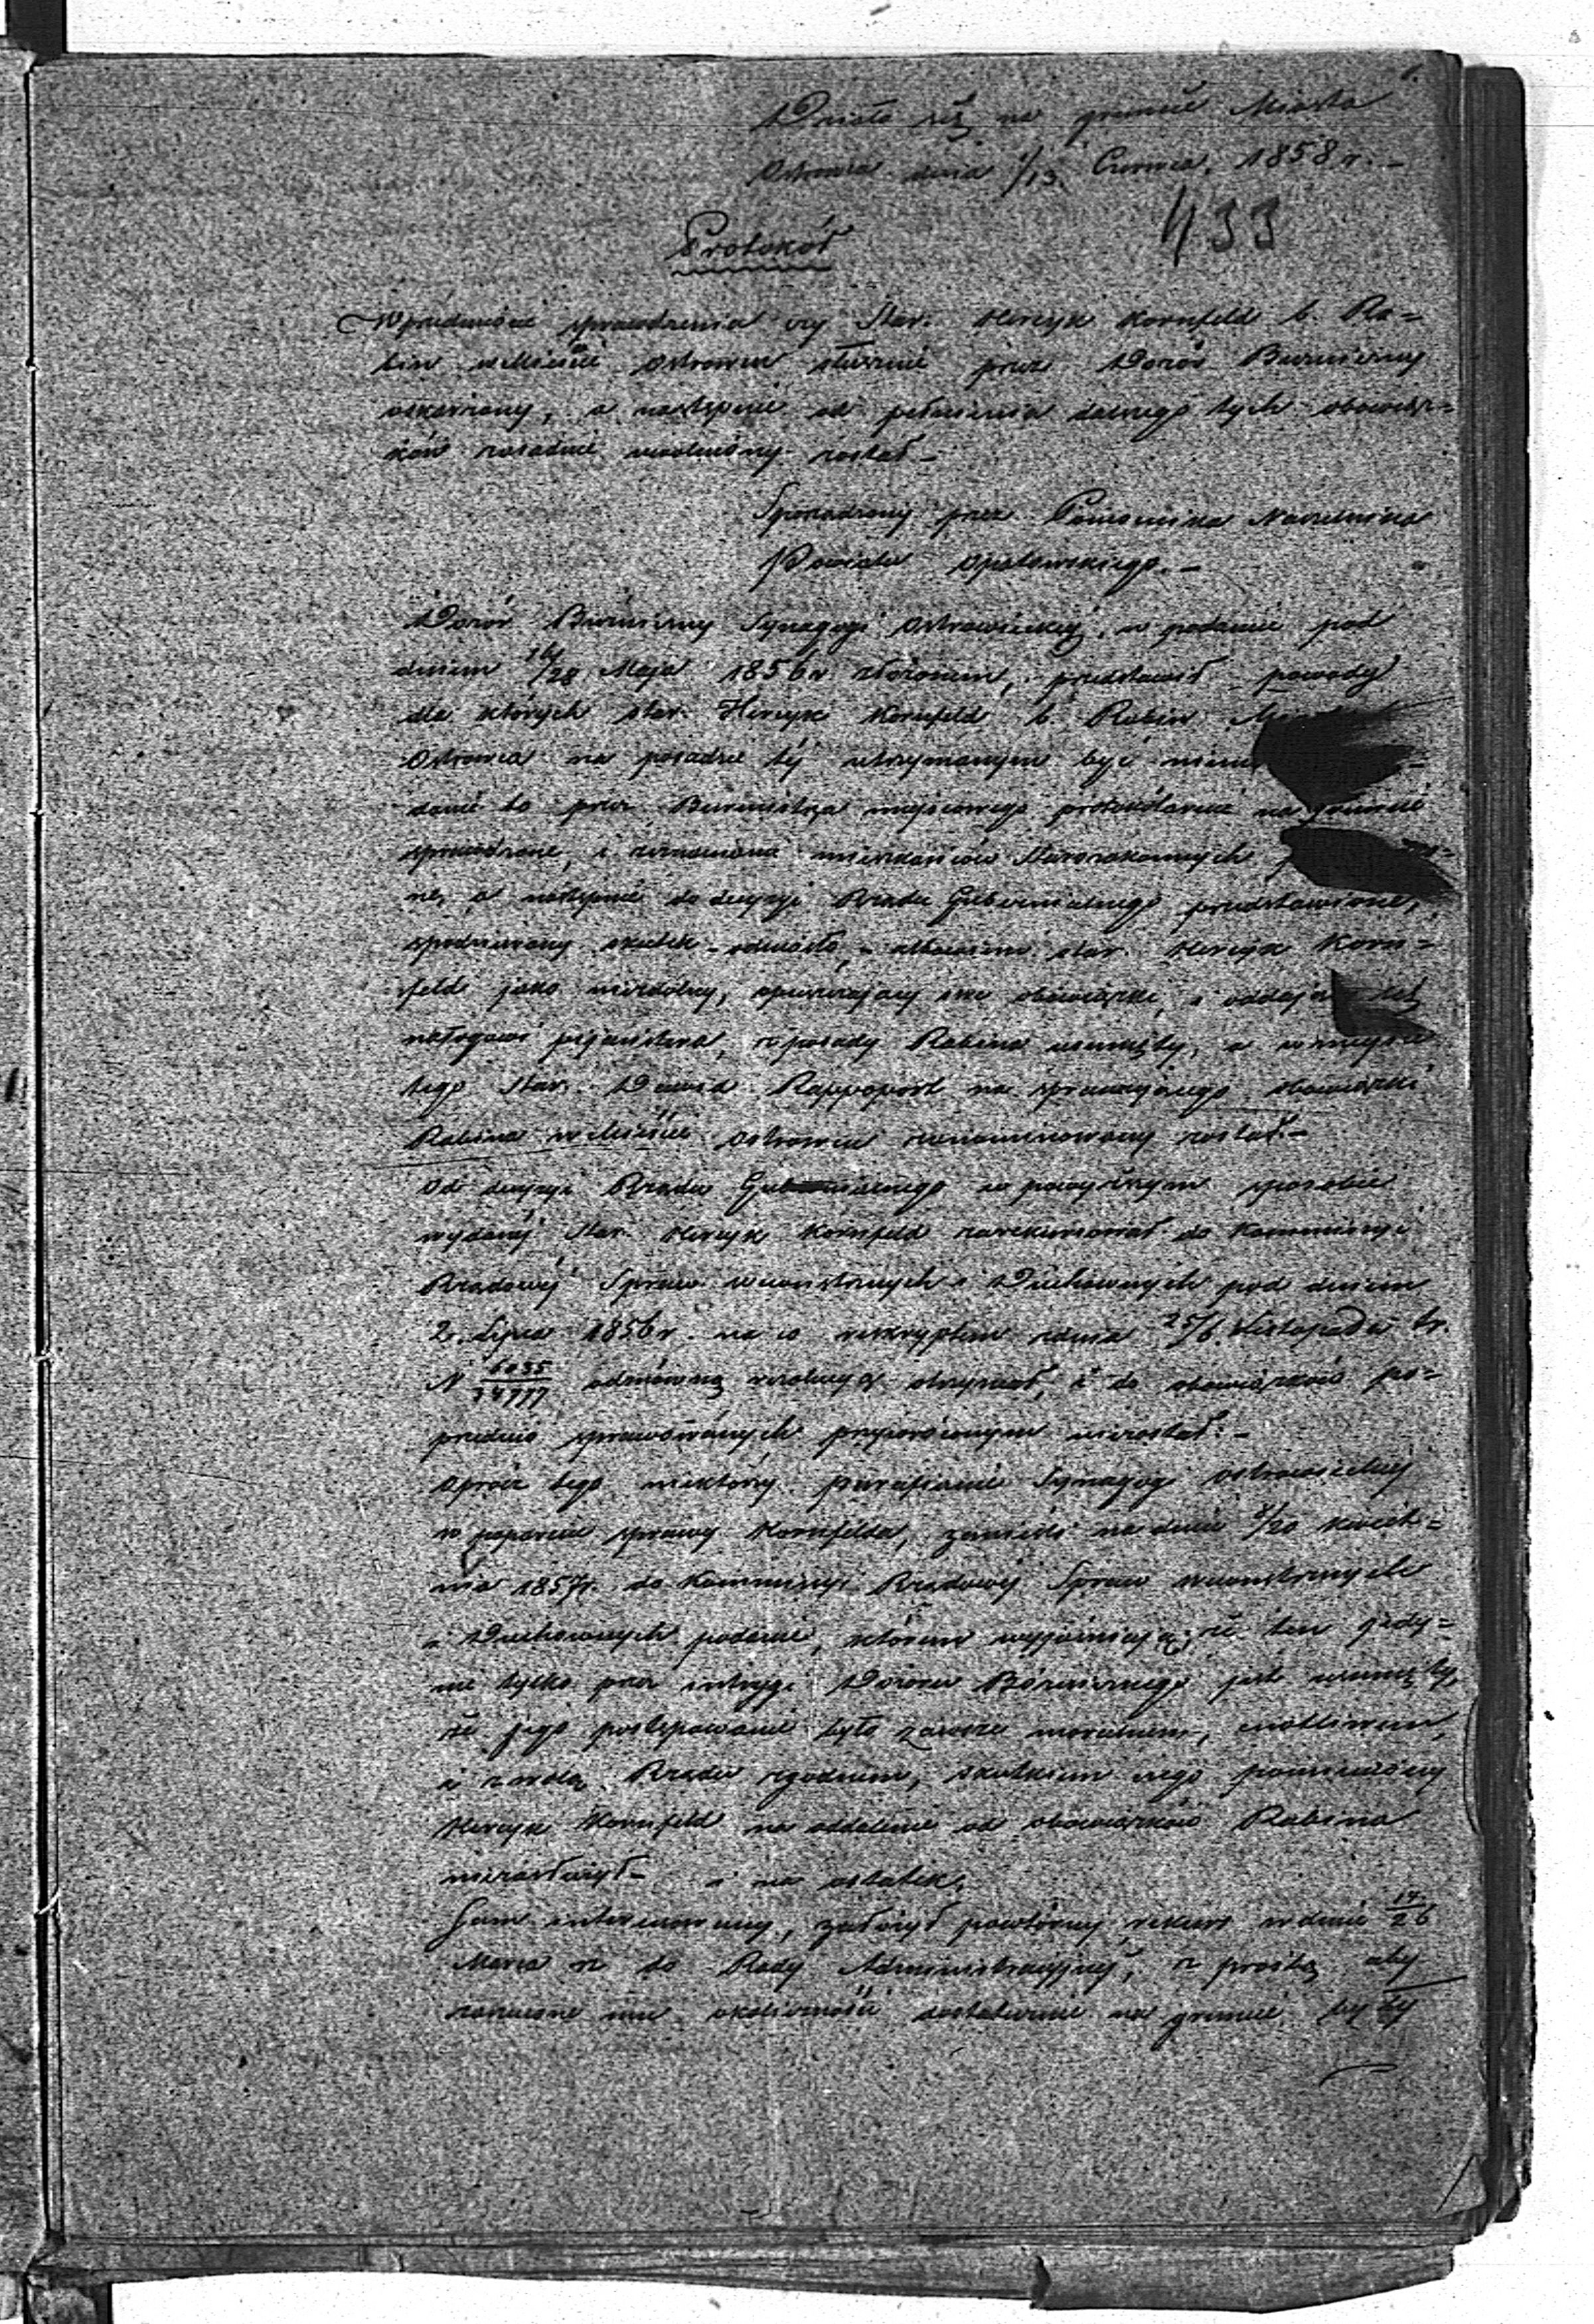 Działo się na gruncie Miasta
Ostrowca dnia 1/13 Czerwca 1858 r. –
433
Protokół
W przedmiocie sprawdzenia czy Star. Herszyk Kornfeld b. Ra=
bin w Mieście Ostrowcu słusznie przez Dozór Bużniczny
oskarżony, a następnie od pełnienia dalszego tych obowiąz=
ków zasadnie uwolniony został –
Sporządzony przez Pomocnika Naczelnika
Powiatu Opatowskiego. –
Dozór Bużniczny Synagogi Ostrowieckiej, w podaniu pod
dniem 16/28 Maja 1856 r. złożonem, przedstawił powody
dla których star. Herszyk Kornfeld b. Rabin
Ostrowca na posadzie tej utrzymanym być
danie to przez Burmistrza miejscowego protokólarnie na gruncie
sprawdzone, i zeznaniami mieszkańców Starozakonnych
ne, a następnie do decyzji Rządu Gubernialnego przedstawione,
spodziewany skutek odniosło, – albowiem star. Herszyk Korn=
feld jako niezdolny, opuszczający swe obowiązki, i oddający się
nałogowi pijaństwa, z posady Rabina usunięty, a w miejsce
tego Star. Dawid Rappoport na sprawującego obowiązki
Rabina w Mieście Ostrowcu zanominowany został. –
Od decyzji Rządu Gubernialnego w powyższym sposobie
wydanej Star. Herszyk Kornfeld zarekursował do Kommissyi
Rządowej Spraw Wewnętrznych i Duchownych pod dniem
2. Lipca 1856 r. na co reskryptem z dnia 25/6 Listopada t.r.
N 6035/34777 odmówną rezolucyą otrzymał, i do obowiązków po=
przednio sprawowanych przywróconym niezostał. –
Oprócz tego niektórzy parafianie Synagogi ostrowieckiej
w poparciu sprawy Kornfelda, zanieśli na dniu 8/20 Kwiet=
nia 1857 r. do Kommissyi Rządowej Spraw Wewnętrznych
i Duchownych podanie, którem wyjaśniają, że ten jedy=
nie tylko przez intrygi Dozoru Bóżniczego jest usunięty,
że jego postępowanie było zawsze moralnem, cnotliwem,
i z wolą Rządu zgodnem, skutkiem czego pomieniony
Herszyk Kornfeld na oddalenie od obowiązków Rabina
niezasłużył – i na ostatek,
Sam interesowany, założył powtórny rekurs w dniu 14/26
Marca do Rady Administracyjnej, z prośbą aby
zarzucone mu okoliczności dostatecznie na gruncie były